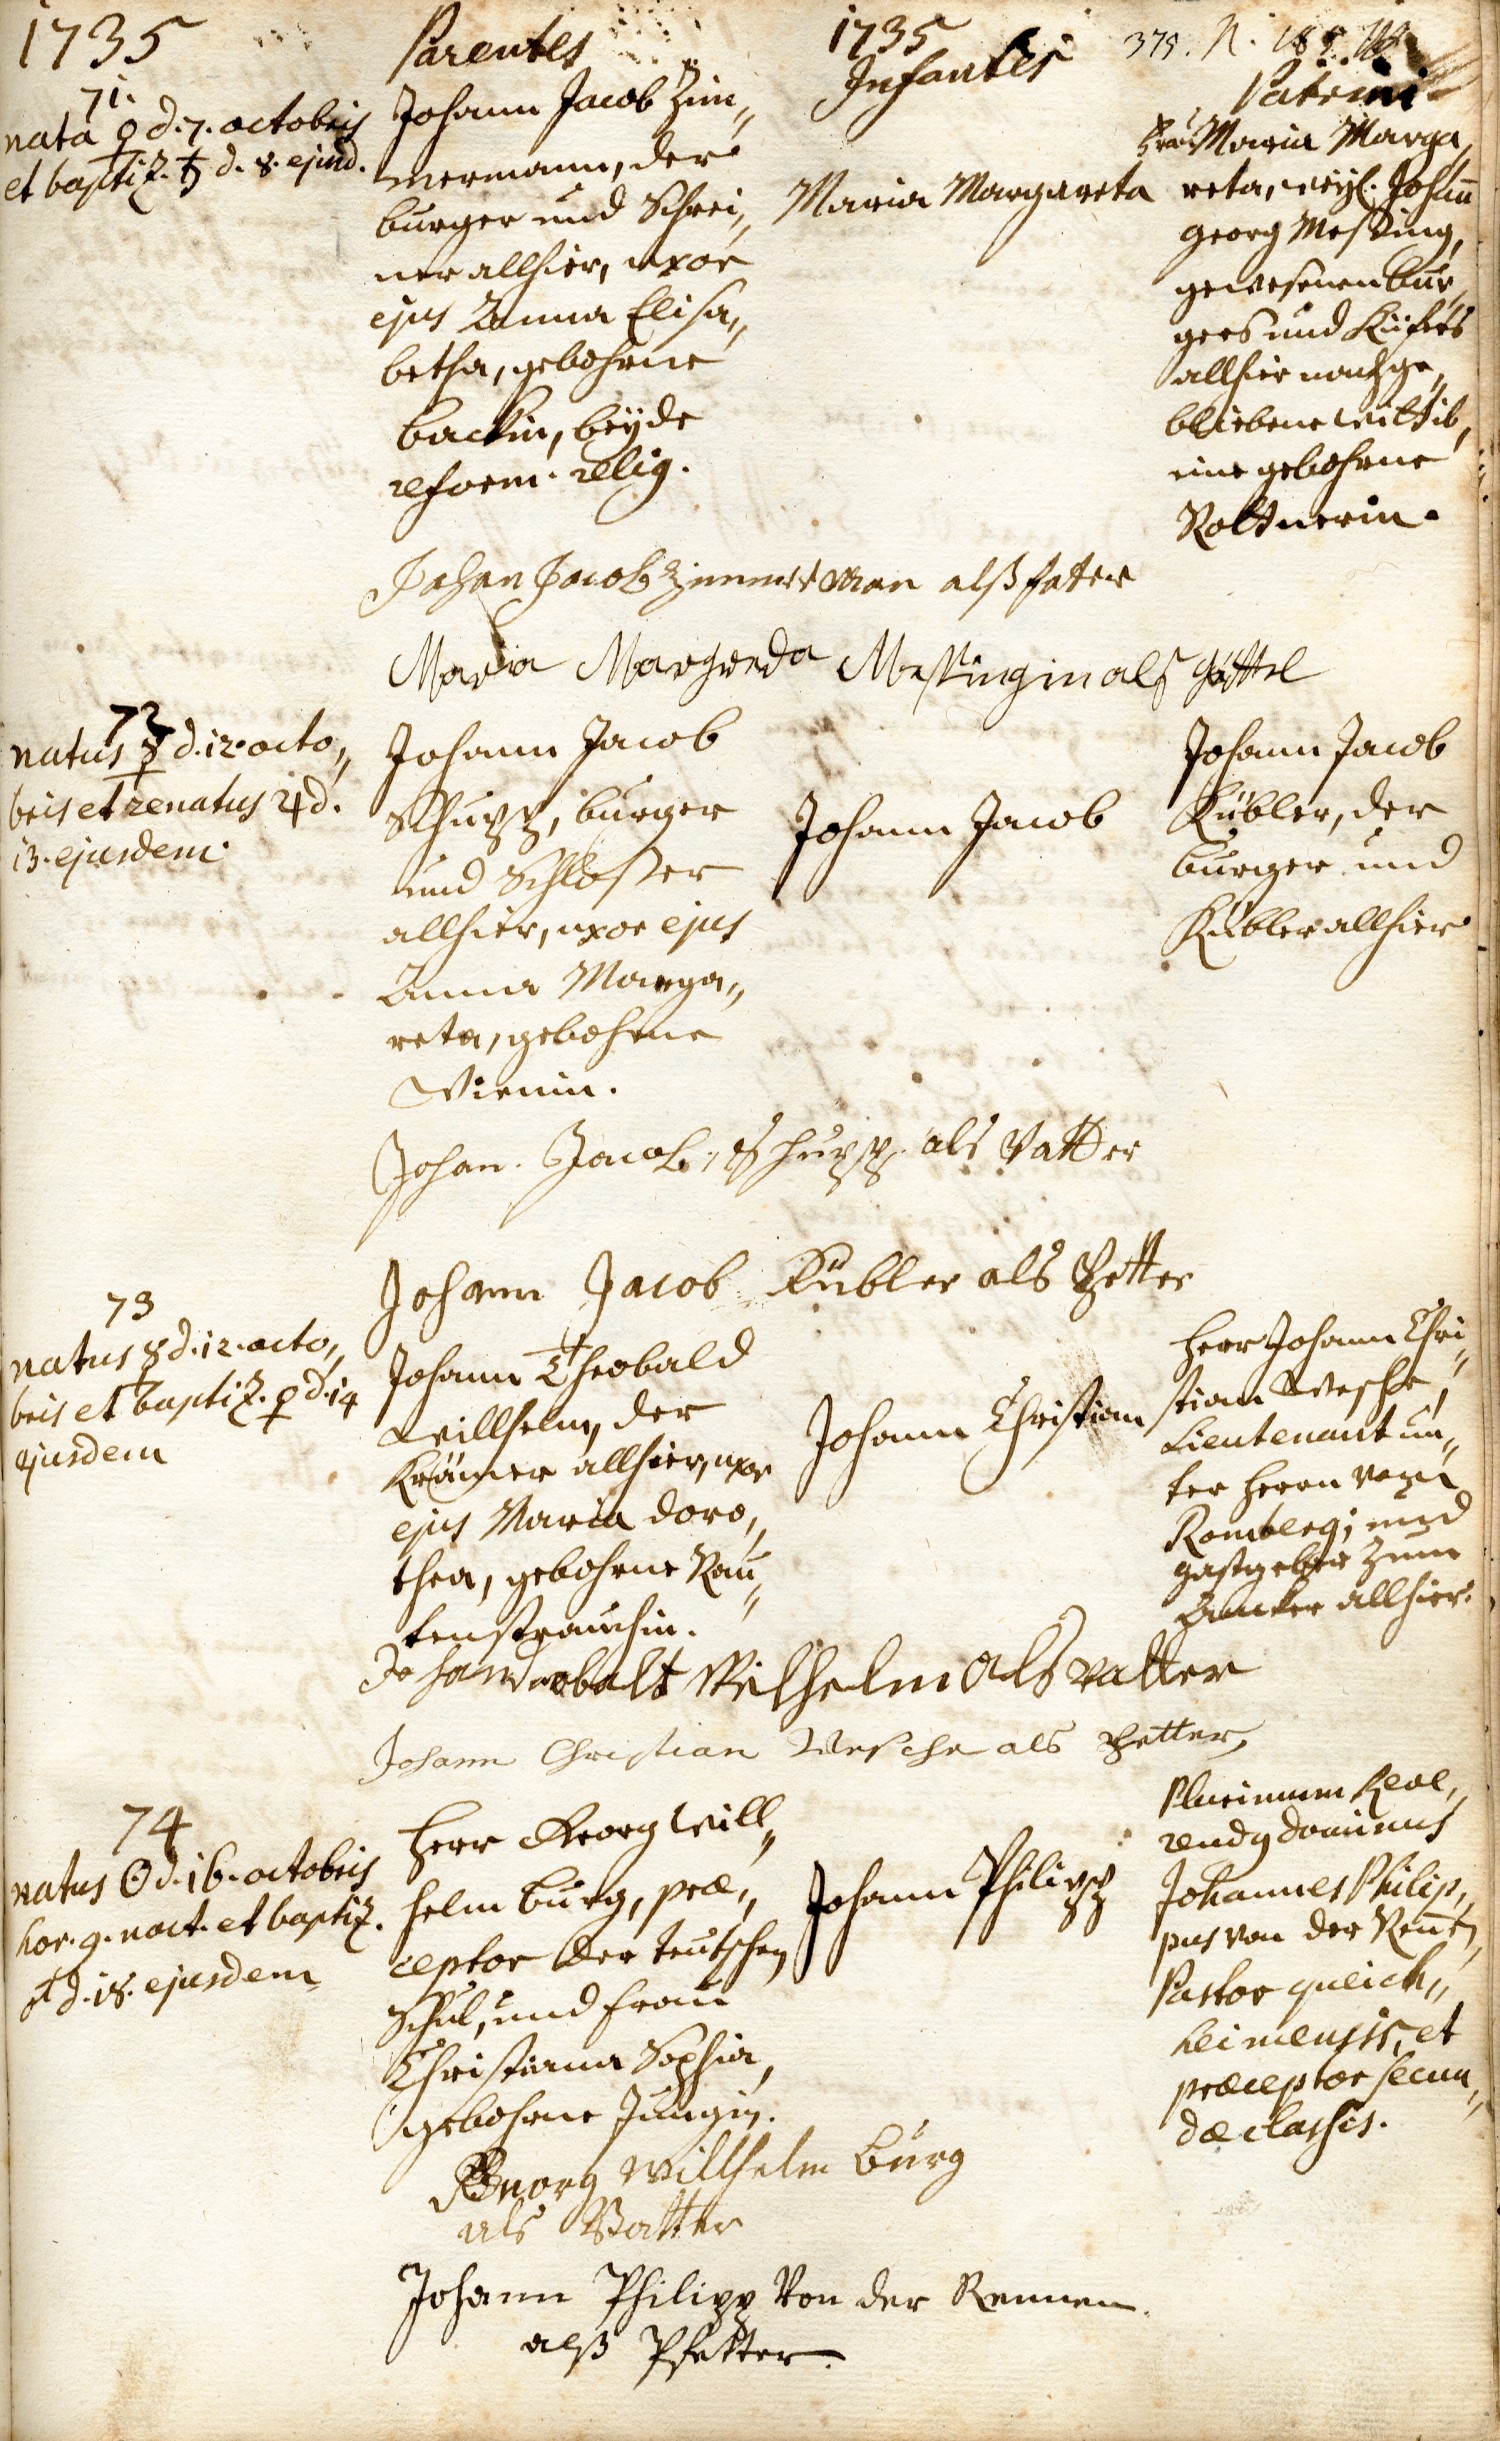 1735
Parentes
1735
Infantes
375. N. 189.
Patrini
71.
nata ♀ d. 7. octobris
et baptiz. ♄ d. 8. ejusd.
Johann Jacob Zim„
mermann, der
burger und Schrei„
ner allhier, uxor
ejus Anna Elisa„
betha, gebohrne
backin, beyde
reform. relig.
Maria Margareta
Frau Maria Marga„
reta, weyl. Johañ
Georg Meßing,
gewesenen bur„
gers und Küfers
allhier nachge„
bliebene wittib,
eine gebohrne
Johan Jacob Zimmerman alß fater
Maria Margreda Meßingin als Göttel
72
natus ☿ d. 12. octo„
bris et renatus ♃ d.
13. ejusdem.
Johann Jacob
Schupp, burger
und Schloßer
allhier, uxor ejus
Anna Marga„
reta, gebohrne
Johann Jacob
Johann Jacob
Kübler, der
burger und
Kübler allhier
Johan. Jacob. Schupp. als Vatter
Johann Jacob Kübler als Petter
73
natus ☿ d. 12. octo„
bris et baptiz. ♀ d. 14
ejusdem
Johann Theobald
Willhelm, der
Krämer allhier, uxor
ejus Maria doro„
thea, gebohrne Rau„
tenstrauchin.
Johann Christian
Herr Johann Chri„
stian Wesche,
Lieutenant un„
ter Herrn von
Romberg, und
gastgeber zum
Ancker allhier.
Johan Debalt Wilhelm als vatter
Johann Christian Wesche als Petter,
74
natus ☉ d. 16. octobris
hor. 9. noct. et baptiz.
♂ d. 18. ejusdem
Herr Georg Will„
helm Burg, præ„
ceptor der teutschen
Schul, und frau
Christiana Sophia,
gebohrne Jungin.
Johann Philipp
Plurimum Reve„
rendq dominus
Johannes Philip„
pus von der Reñen,
Pastor queich„
heimensis, et
præceptor secun„
dæ classis.
Georg Willhelm Burg
als Vatter
Johann Philipp Von der Rennen.
alß Pfetter.